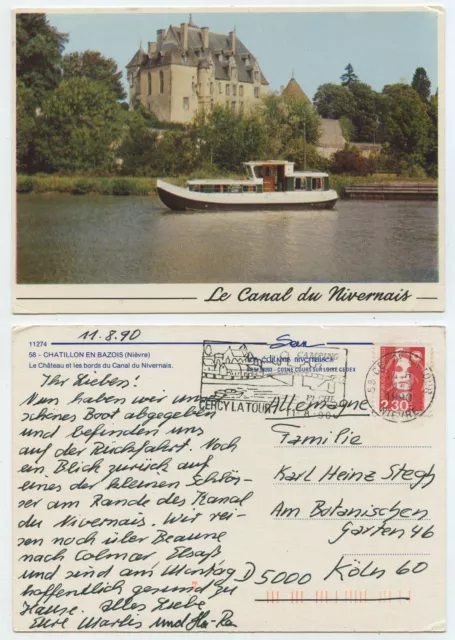 Le Canal du Nivernais
11274
58 - CHATILLON EN BAZOIS (Nièvre)
Le Château et les bords du Canal du Nivernais.
11.8.90
Ihr Lieben!
Nun haben wir unser
schönes Boot abgegeben
und befinden uns
auf der Rückfahrt. Noch
ein Blick zurück auf
eines der kleinen Schlös-
ser am Rande des Kanal
du Nivernais. Wir rei-
sen noch über Beaune
nach Colmar Elsaß
und sind am Montag
hoffentlich gesund zu
Hause. Alles Liebe
Eure Marlis und
les éditions nivernaises
COSNE COURS SUR LOIRE CEDEX
CAMPING
CERCY LA TOUR
58
NIEVRE
2,30
Allemagne
Familie
Karl Heinz Stegh
Am Botanischen
Garten 46
D 5000 Köln 60